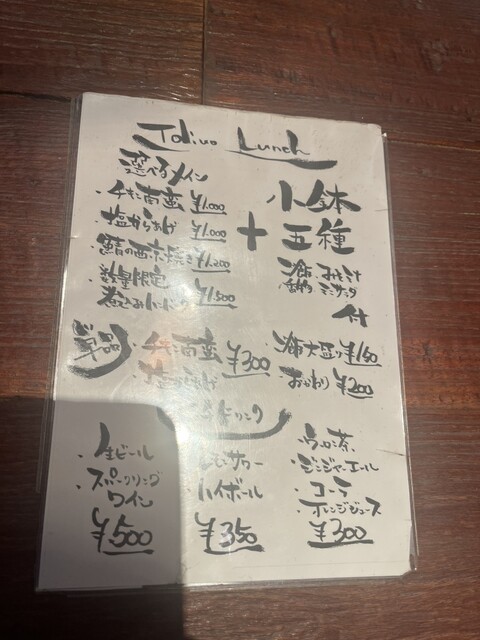 Lunch
選べるメイン
・チキン南蛮 ¥1.000
・塩からあげ ¥1.000
・鯖の西京焼き ¥1.200
・数量限定
煮込みハンバーグ ¥1.500
+
小鉢
五種
みそ汁
ミニサラダ
付
単品
・チキン南蛮
・塩からあげ
¥300
大盛り ¥150
・おかわり ¥200
ドリンク
・生ビール
・スパークリング
ワイン
¥500
・レモンサワー
・ハイボール
¥350
・ウーロン茶
・ジンジャーエール
・コーラ
・オレンジジュース
¥300